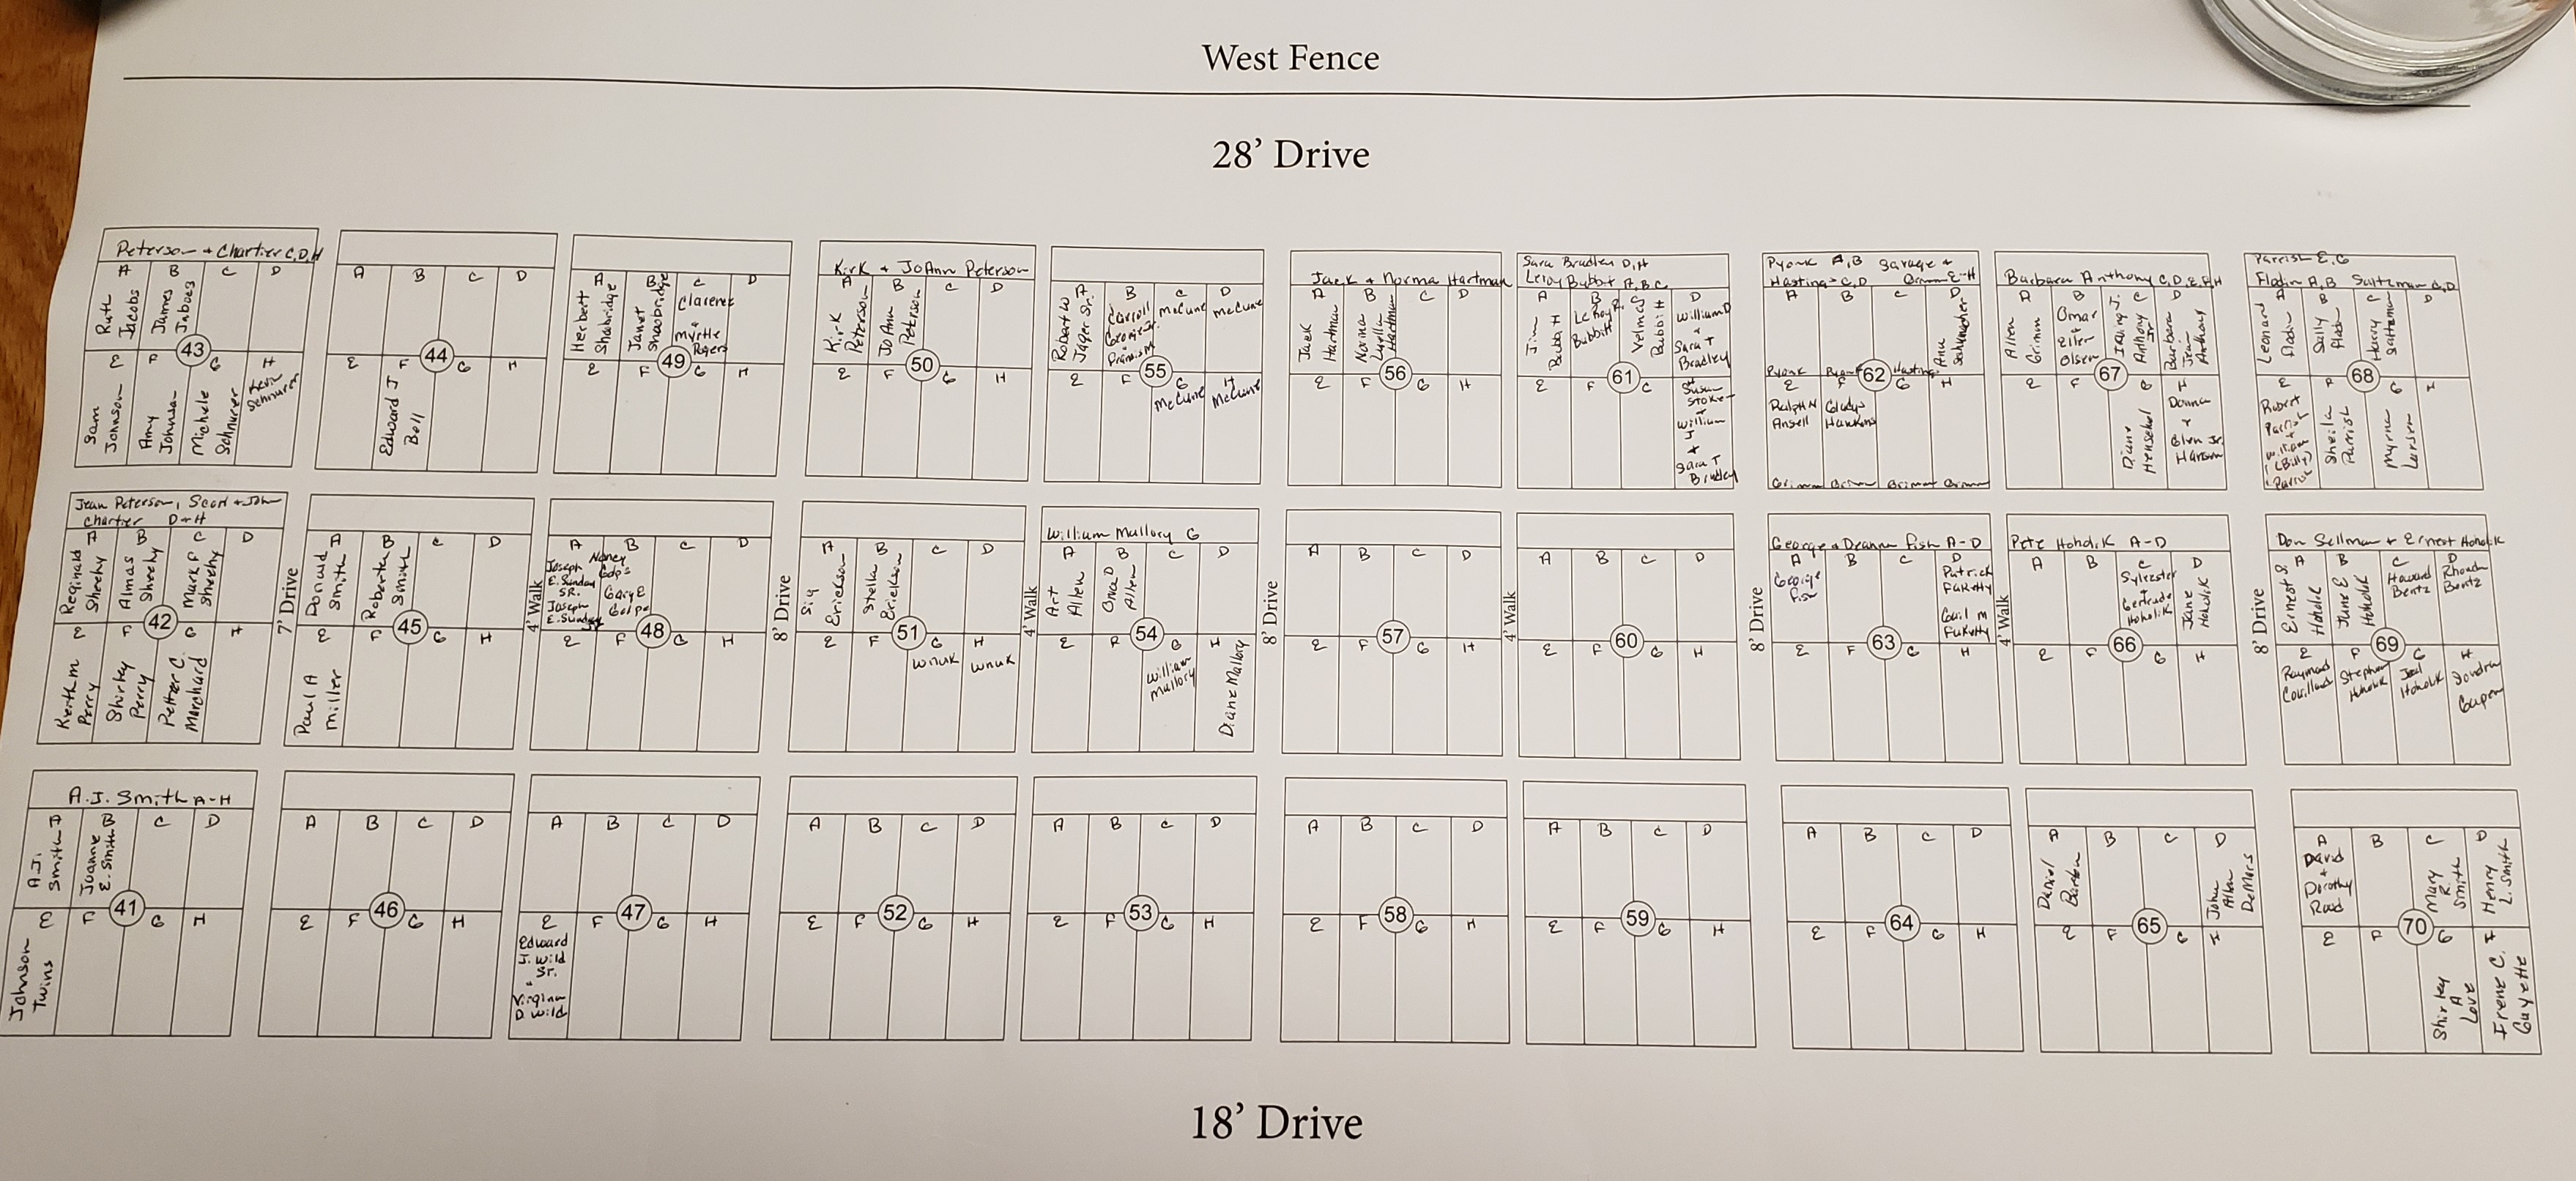 West Fence
28' Drive
Peterson + Chartier C, D, H
A B C D
Ruth Jacobs
James
43
E F G H
Sam Johnson
Amy Johnson
Michele Schnurer
Schnurer
A B C D
44
E F G H
Edward J Bell
A B C D
Herbert Shabridge
Janet
Clarence + Myrtle Rogers
49
E F G H
Kirk & JoAnn Peterson
A B C D
Kirk Peterson
JoAnn Peterson
50
E F G H
A B C D
Robert W Jager Sr.
Carroll
McCune
McCune
55
E F G H
McCune
McCune
Jack & Norma Hartman
A B C D
Jack Hartman
Norma Luella Hartman
56
E F G H
Sara Bradley D, H
Leroy Bubbit A, B, C
A B C D
Jim Bubbitt
LeRoy R. Bubbitt
Velma J Bubbitt
William D + Sara T Bradley
61
E F C
Susan Stoker + William J + Sara T Bradley
Pyonk A, B
Hastings C, D Grimm E-H
A B C D
Ann
Pyonk
Pyonk
Hastings
62
E F G H
Ralph N Ansell
Gladys Hawkins
Grimm Grimm Grimm Grimm
Barbara Anthony C, D, E, F, H
A B C D
Allen Grimm
Omar Eller + Olsen
Irving J. Anthony Jr
Barbara Jean Anthony
67
E F G H
Diane Henschel
Donna + Glen Jr. Hanson
Parrish E, G
Flodin A, B Saltzman C, D
A B C D
Leonard Flodin
Sally Flodin
Harry Saltzman
68
E F G H
Robert
Sheila Parrish
Myrna Larson
Jean Peterson, Scott + John
Chartier D + H
A B C D
Reginald Sheehy
Almas Sheehy
Mark P Sheehy
42
E F G H
Keith M Perry
Shirley Perry
Petter C. Marchard
7' Drive
A B C D
Donald Smith
Roberta Smith
45
E F G H
Paul A Miller
4' Walk
A B C D
Joseph E. Sunday SR.
Joseph E. Sunday Jr
Nancy
48
E F G H
8' Drive
A B C D
Sig Erickson
Stella Erickson
51
E F G H
Wnuk
Wnuk
4' Walk
William Mallory G
A B C D
Art Allen
Allen
54
E F G H
William Mallory
Diane Mallory
8' Drive
A B C D
57
E F G H
4' Walk
A B C D
60
E F G H
8' Drive
George & Deanna Fish A-D
A B C D
George Fish
Patrick
Gail M
63
E F G H
4' Walk
Pete Hoholik A-D
A B C D
Sylvester + Gertrude Hoholik
Jane Hoholik
66
E F G H
8' Drive
Don Sellman + Ernest Hoholik
A B C D
Ernest S. Hoholik
June E Hoholik
Howard Bentz
Rhonda Bentz
69
E F G H
Raymond
Stephen Hoholik
Joel Hoholik
A.J. Smith A-H
A B C D
A.J. Smith
Juanne E. Smith
41
E F G H
Johnson Twins
A B C D
46
E F G H
A B C D
47
E F G H
Edward J. Wild Sr. & Virginia D. Wild
A B C D
52
E F G H
A B C D
53
E F G H
A B C D
58
E F G H
A B C D
59
E F G H
A B C D
64
E F G H
A B C D
Daniel
John Allen DeMars
65
E F G H
A B C D
David + Dorothy Rood
Mary R. Smith
Henry L. Smith
70
E F G H
Shirley A Love
Irene C. Guyette
18' Drive